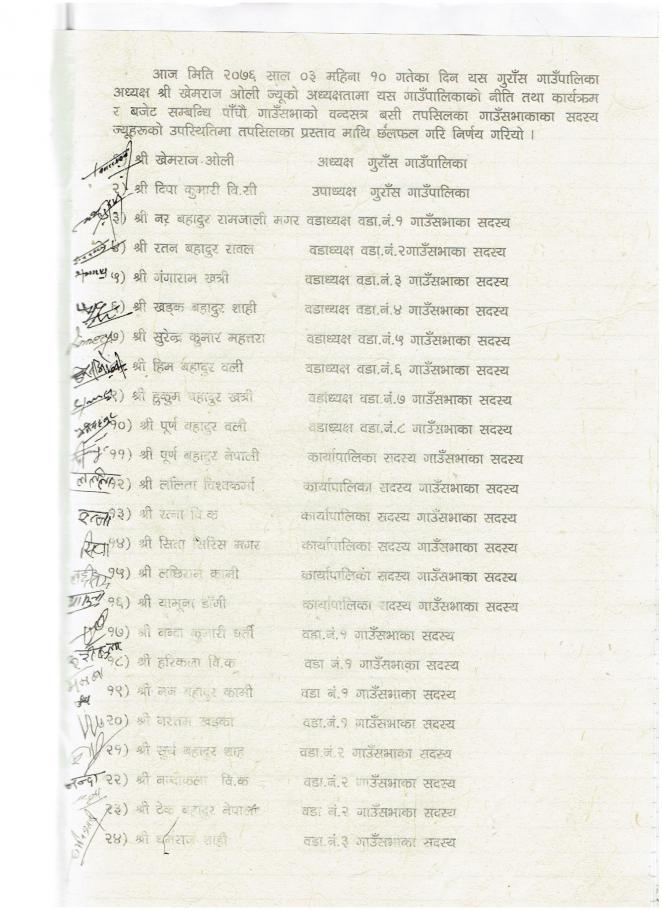 आज मिति २०७६ साल ०३ महिना १० गतेका दिन यस गुराँस गाउँपालिका
अध्यक्ष श्री खेमराज ओली ज्यूको अध्यक्षतामा यस गाउँपालिकाको नीति तथा कार्यक्रम
र बजेट सम्बन्धि पाँचौ गाउँसभाको वन्दसत्र बसी तपसिलका गाउँसभाकाका सदस्य
ज्यूहरुको उपस्थितिमा तपसिलका प्रस्ताव माथि छलफल गरि निर्णय गरियो ।
श्री खेमराज ओली अध्यक्ष गुराँस गाउँपालिका
२) श्री दिपा कुमारी वि.सी उपाध्यक्ष गुराँस गाउँपालिका
३) श्री नर बहादुर रामजाली मगर वडाध्यक्ष वडा.नं.१ गाउँसभाका सदस्य
४) श्री रतन बहादुर रावल वडाध्यक्ष वडा.नं.२गाउँसभाका सदस्य
५) श्री गंगाराम खत्री वडाध्यक्ष वडा.नं.३ गाउँसभाका सदस्य
६) श्री खड्क बहादुर शाही वडाध्यक्ष वडा.नं.४ गाउँसभाका सदस्य
७) श्री सुरेन्द्र कुमार महत्तरा वडाध्यक्ष वडा.नं.५ गाउँसभाका सदस्य
श्री हिम बहादुर वली वडाध्यक्ष वडा.नं.६ गाउँसभाका सदस्य
९) श्री हुकुम बहादुर खत्री वडाध्यक्ष वडा.नं.७ गाउँसभाका सदस्य
१०) श्री पूर्ण बहादुर वली वडाध्यक्ष वडा.नं.८ गाउँसभाका सदस्य
११) श्री पूर्ण बहादुर नेपाली कार्यापालिका सदस्य गाउँसभाका सदस्य
ललिता १२) श्री ललिता विश्वकर्मा कार्यापालिका सदस्य गाउँसभाका सदस्य
रत्ना १३) श्री रत्ना वि.क कार्यापालिका सदस्य गाउँसभाका सदस्य
सिता १४) श्री सिता सिरिस मगर कार्यापालिका सदस्य गाउँसभाका सदस्य
१५) श्री लछिराम कामी कार्यापालिका सदस्य गाउँसभाका सदस्य
१६) श्री यामूना डाँगी कार्यापालिका सदस्य गाउँसभाका सदस्य
१७) श्री नन्दा कुमारी घर्ती वडा.नं.१ गाउँसभाका सदस्य
१८) श्री हरिकला वि.क वडा नं.१ गाउँसभाका सदस्य
१९) श्री बहादुर कामी वडा नं.१ गाउँसभाका सदस्य
२०) श्री खड्का वडा.नं.१ गाउँसभाका सदस्य
२१) श्री सूर्य बहादुर शाह वडा.नं.२ गाउँसभाका सदस्य
नन्दा २२) श्री नन्दाकला वि.क वडा.नं.२ गाउँसभाका सदस्य
२३) श्री टेक बहादुर नेपाली वडा नं.२ गाउँसभाका सदस्य
२४) श्री धनराज शाही वडा.नं.३ गाउँसभाका सदस्य